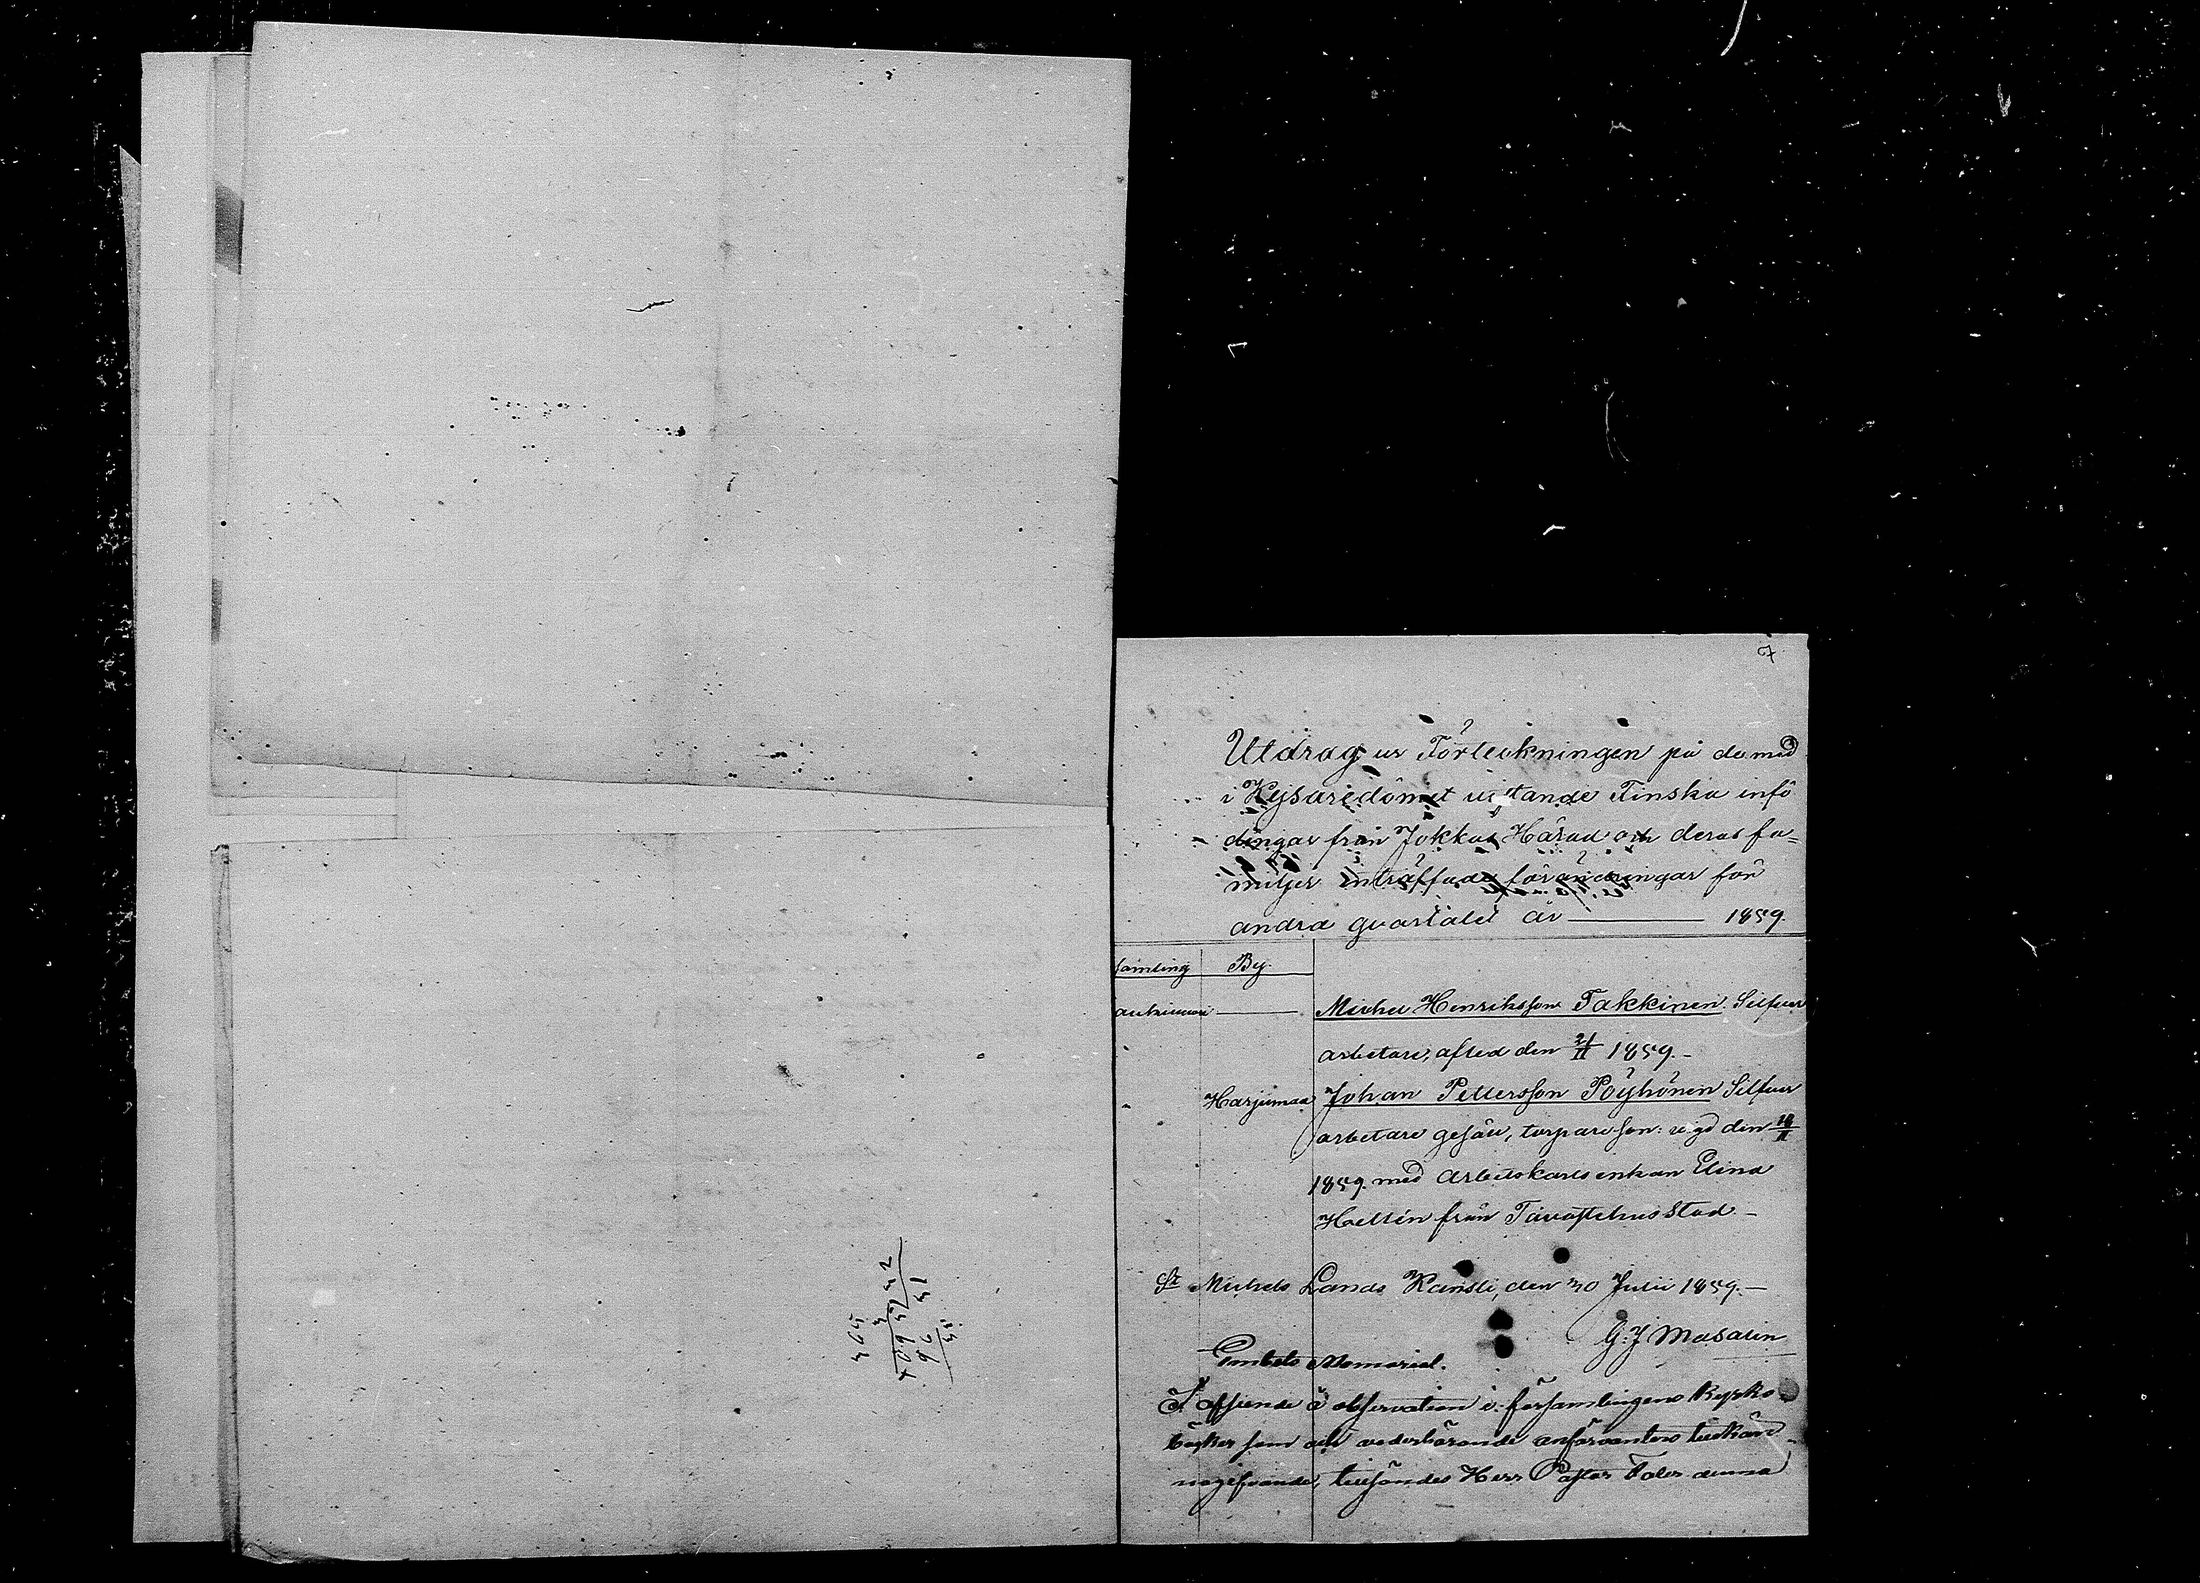 7
Utdrag ur Förteckningen på de med
i Kejsaredömet vistande Finska infö
dingar från Jokkas Härad och deras fa=
miljer inträffade förändringar för
andra qvartalet år 1859.
samling By.
Michel Henriksson Takkinen Silfver
arbetare, afled den 21/II 1859.
Harjumaa Johan Pettersson Pöyhönen Silfver
arbetare gesäll, torpareson: vigd den
1859. med Arbetskarls enkan Elina
Hellén från Tavastehus Stad
St Michels Lands Kansli, den 30 Julii 1859.
G J Masalin
Embets Memorial.
Till observation i församlingens Kyrko
böcker som och vederbörande anförvanters tillkän
nagifvande, tillsändes Herr Pastor denna